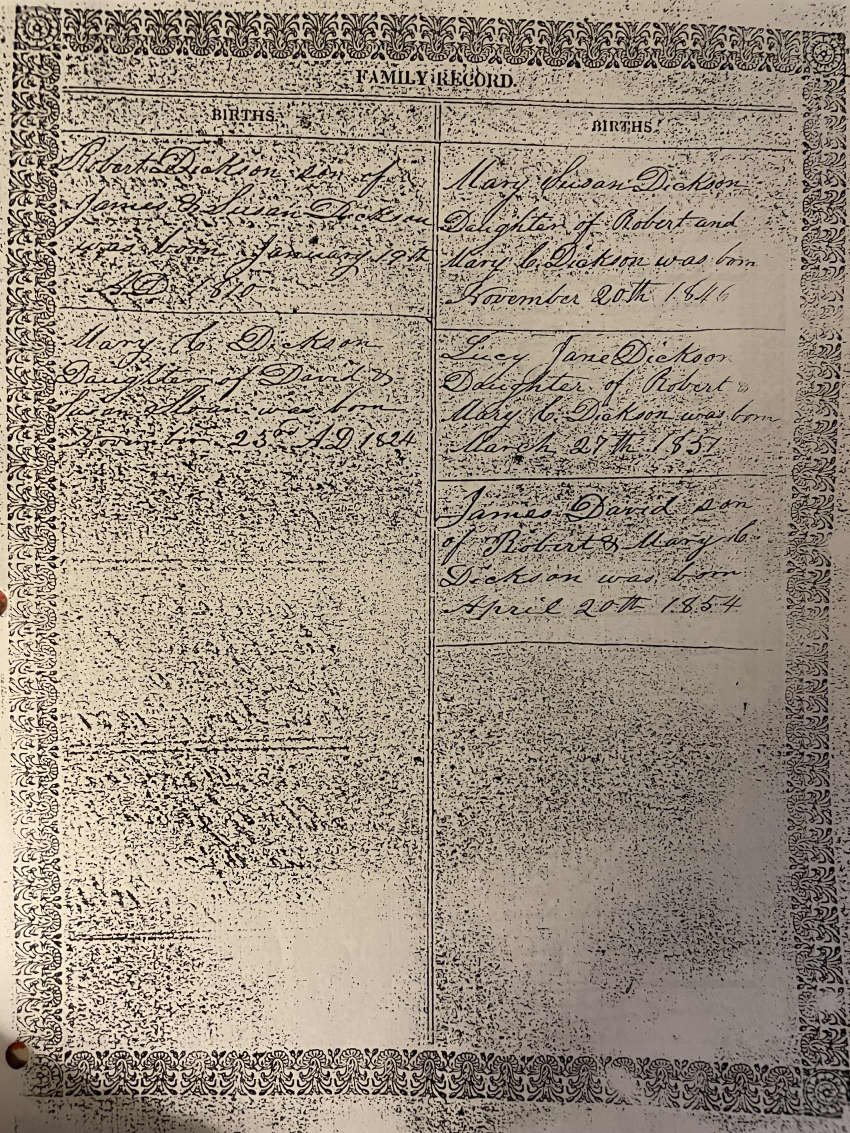 FAMILY RECORD.
BIRTHS.
Robert Dickson son of
James & Susan Dickson
was born January 19th
AD 1810
Mary C Dickson
Daughter of David &
Susan Sloan was born
November 23rd AD 1824
BIRTHS.
Mary Susan Dickson
Daughter of Robert and
Mary C. Dickson was born
November 20th 1846
Lucy Jane Dickson
Daughter of Robert &
Mary C. Dickson was born
March 27th 1851
James David son
of Robert & Mary C.
Dickson was born
April 20th 1854